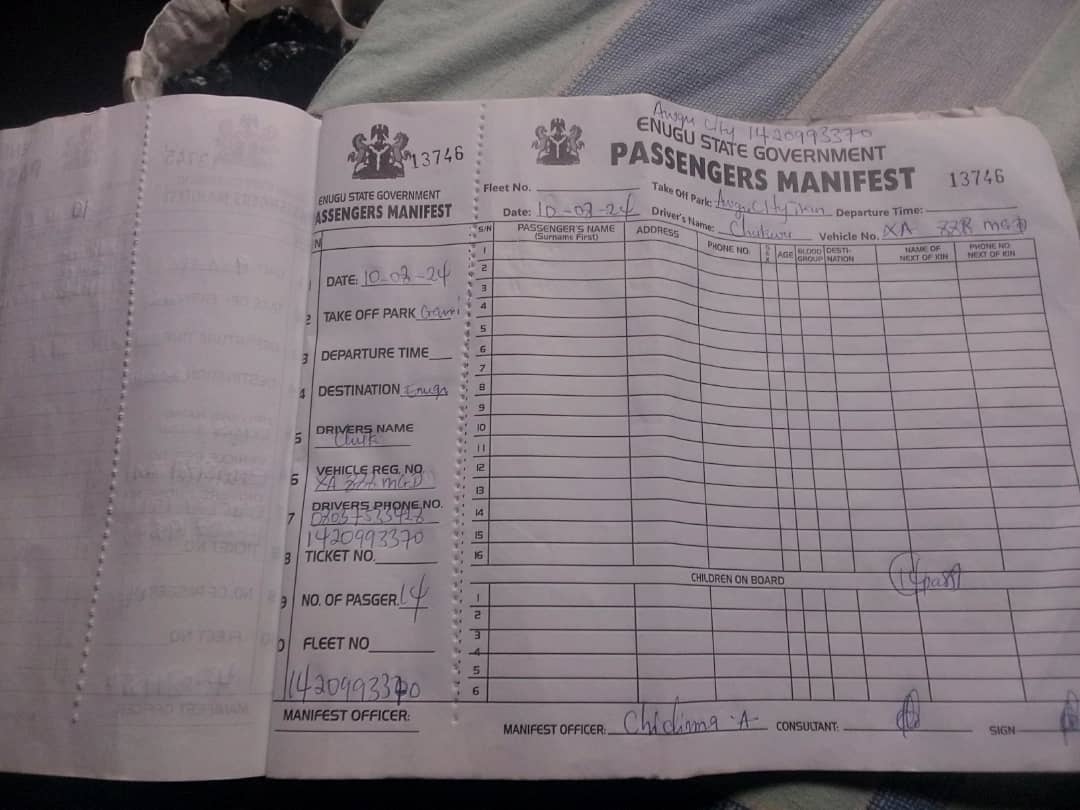 13746
ENUGU STATE GOVERNMENT
ASSENGERS MANIFEST
N
DATE: 10-08-24
2 TAKE OFF PARK
3 DEPARTURE TIME
4 DESTINATION Enugu
5 DRIVERS NAME
6 VEHICLE REG. NO.
XA
7 DRIVERS PHONE NO.
1420993370
8 TICKET NO.
9 NO. OF PASGER. 14
0 FLEET NO
1420993370
MANIFEST OFFICER:
Awgu City 1420993370
ENUGU STATE GOVERNMENT
PASSENGERS MANIFEST 13746
Fleet No. Take Off Park: Departure Time:
Date: 10-08-24 Driver's Name: Vehicle No. XA
S/N PASSENGER'S NAME (Surname First) ADDRESS PHONE NO. SEX AGE BLOOD GROUP DESTI-NATION NAME OF NEXT OF KIN PHONE NO. NEXT OF KIN
1
2
3
4
5
6
7
8
9
10
11
12
13
14
15
16
CHILDREN ON BOARD
14 pass
1
2
3
4
5
6
MANIFEST OFFICER: Chidinma A CONSULTANT: SIGN